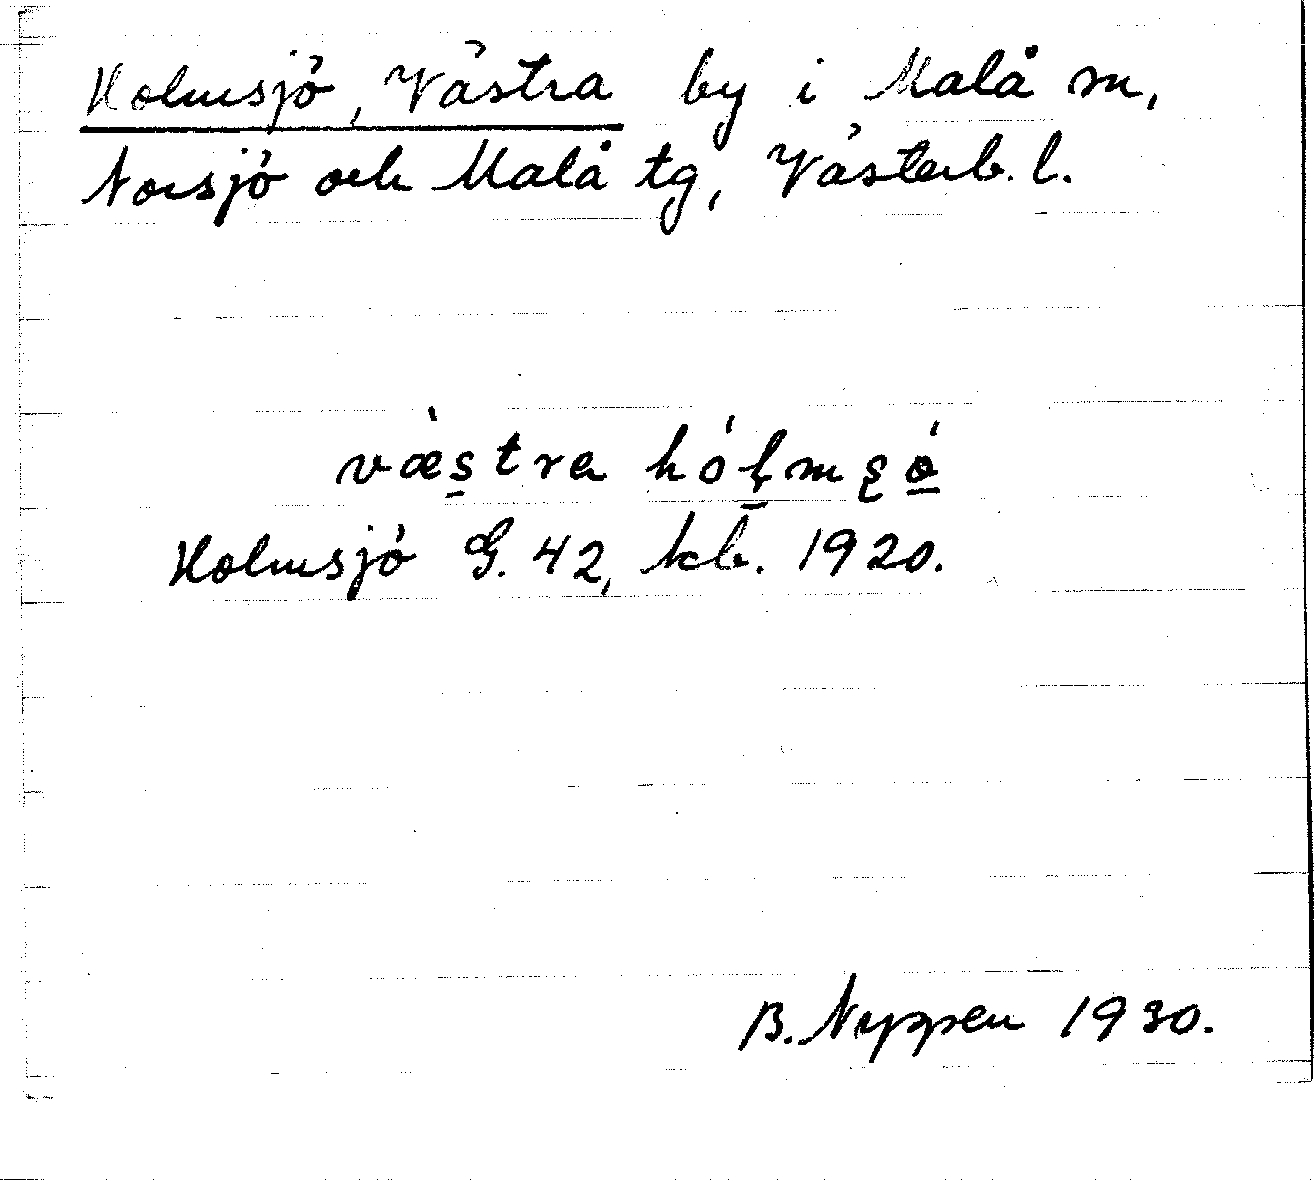 Holmsjö, Västra by i Malå sn,
Norsjö och Malå tg, Västerb. l.
væ̀stra hólmʂǿ
Holmsjö G. 42, kb. 1920.
B. Nyppen 1930.